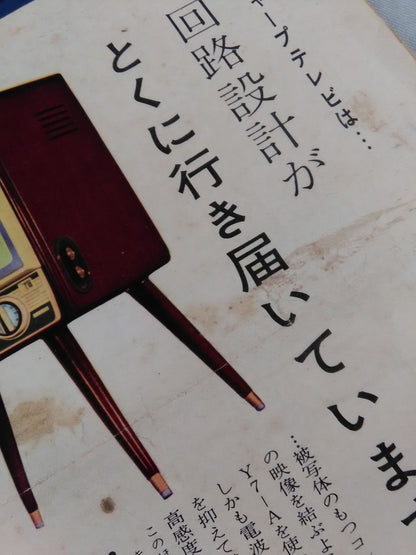 ャープテレビは…
回路設計が
とくに行き届いていま
…被写体のもつコ
の映像を結ぶよ
を使
しかも電波
を抑えて
高感度
この